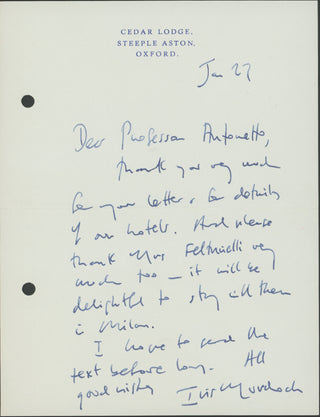 CEDAR LODGE,
STEEPLE ASTON,
OXFORD.
Jan 27
Dear Professor Antonetto,
thank you very much
for your letter & for details
of our hotels. And please
thank Mrs Feltrinelli very
much too – it will be
delightful to stay with them
in Milan.
I hope to send the
text before long. All
good wishes
Iris Murdoch